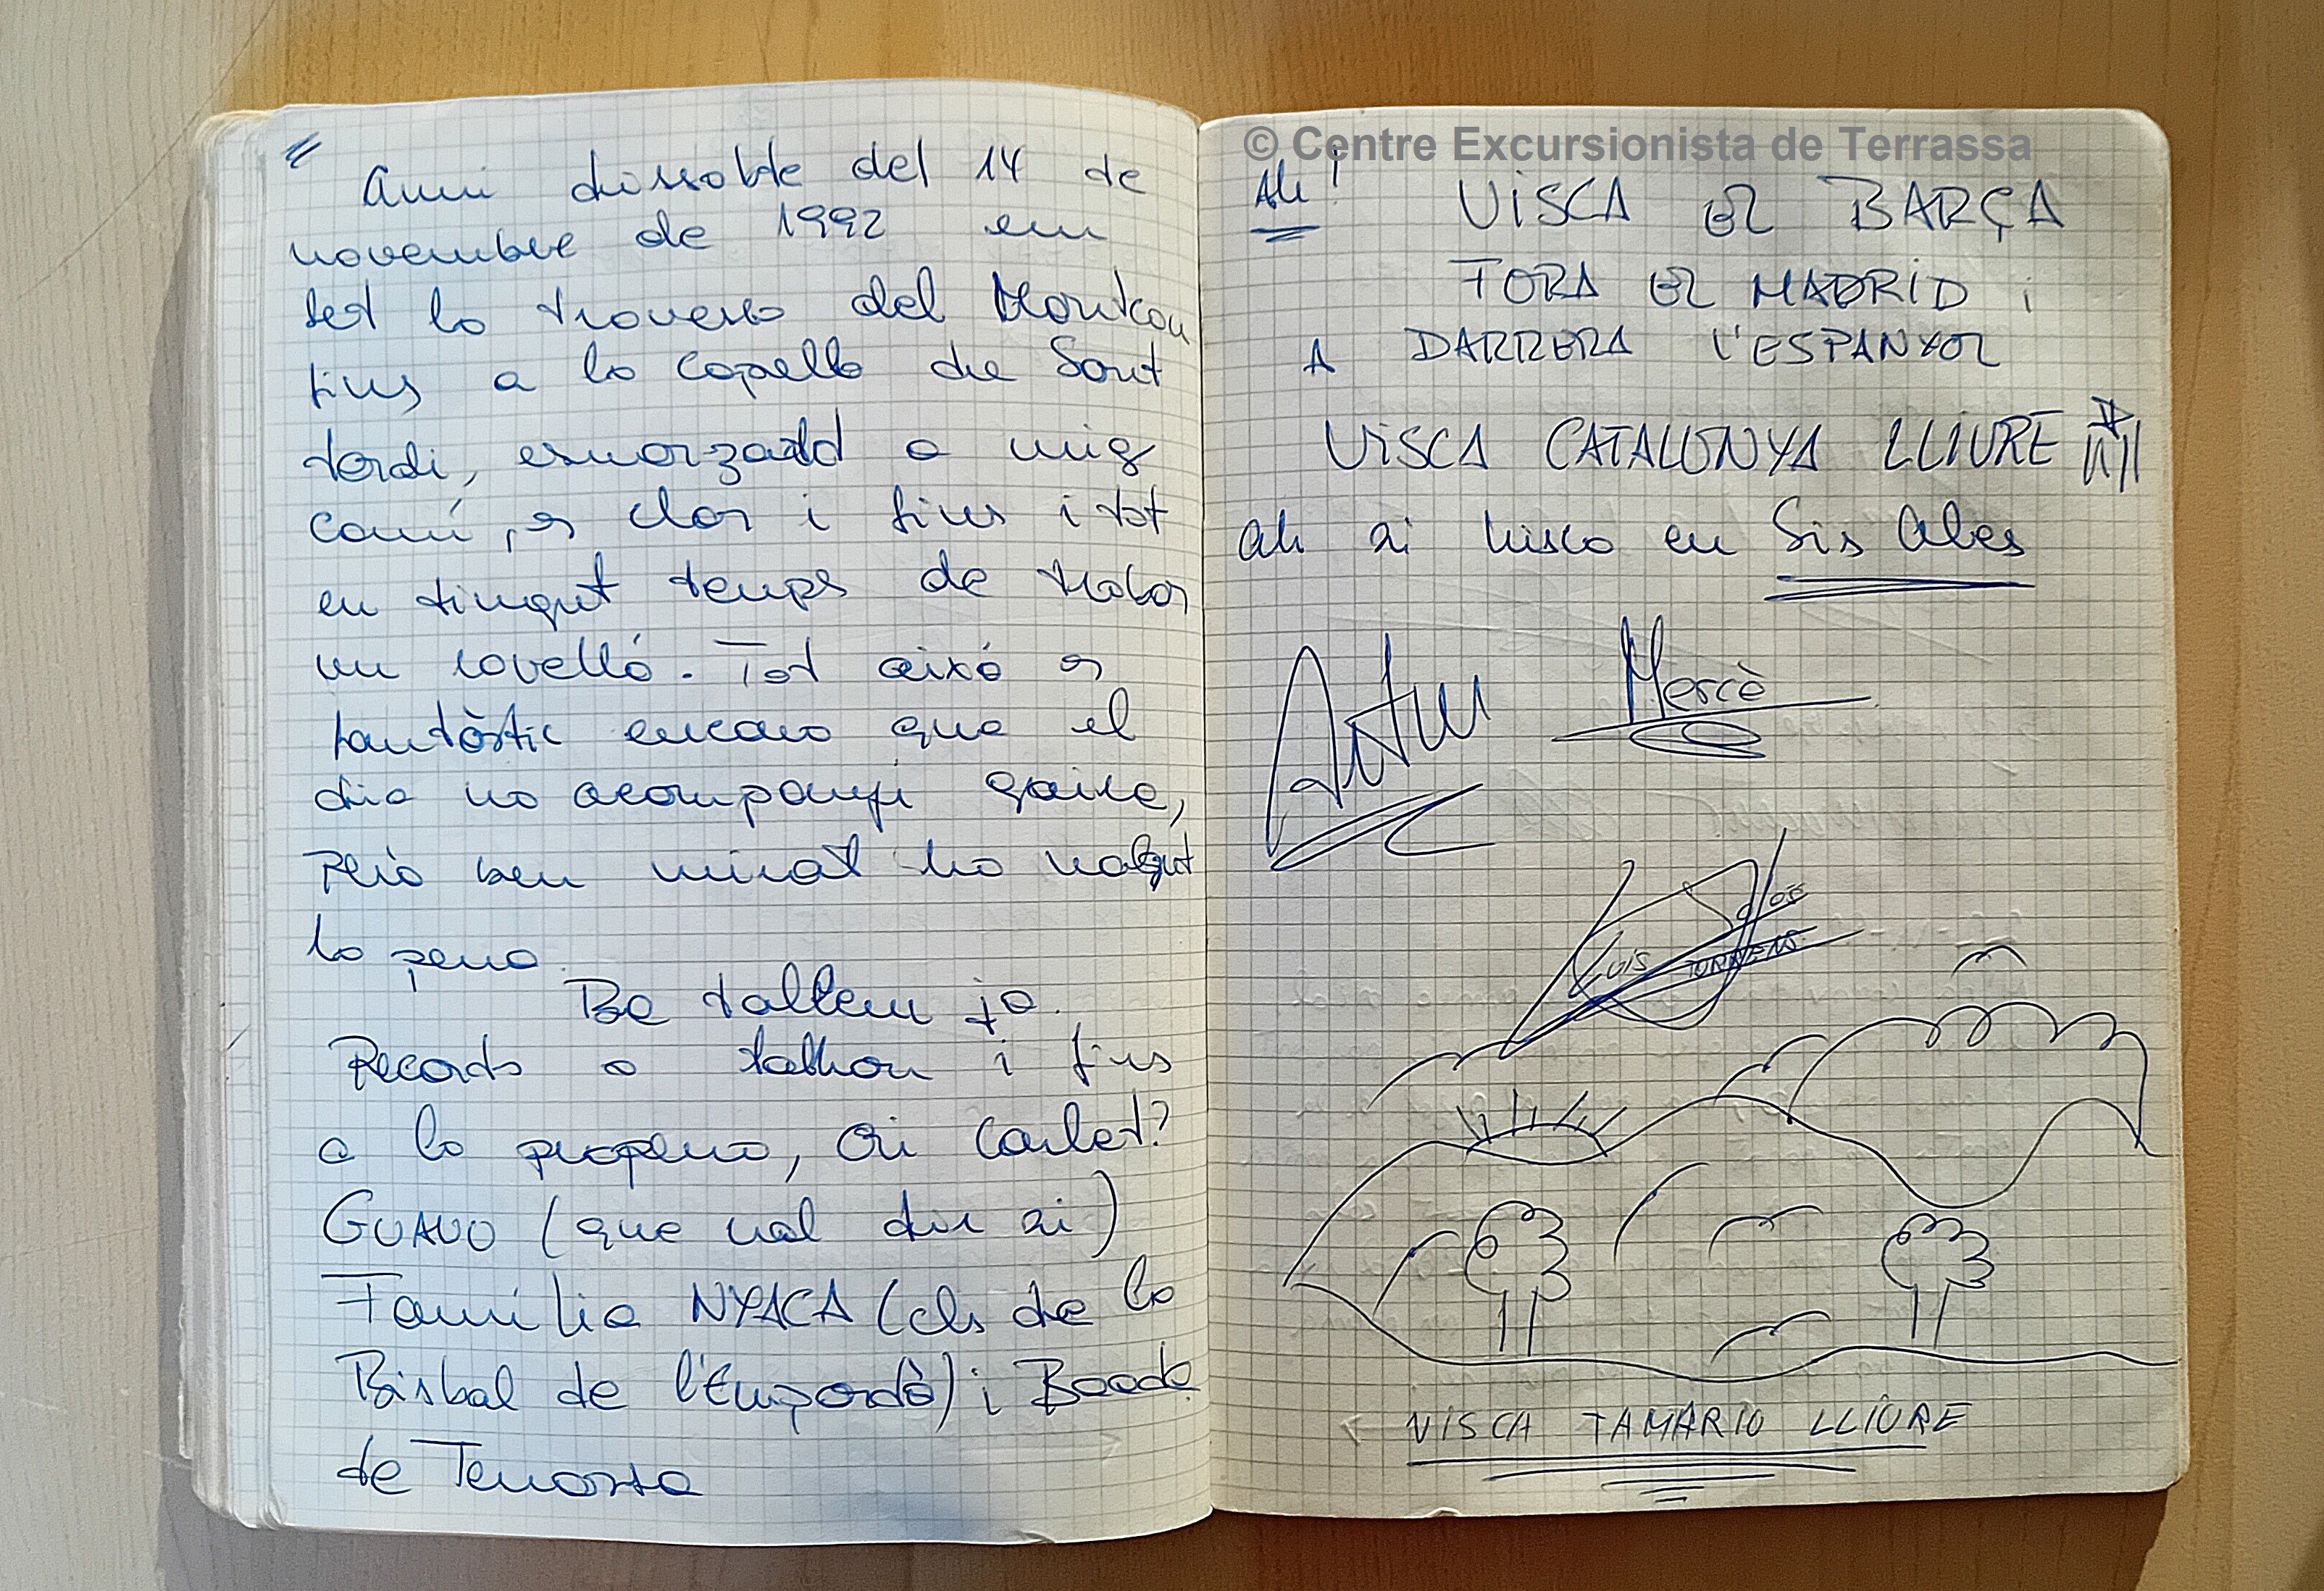 Avui dissabte del 14 de
novembre de 1992 em
fet la travessa del Montcau
fins a la capella de Sant
Jordi, esmorzadd a mig
camí, es clar i fins i tot
em tingut temps de trobar
un rovelló. Tot aixó es
fantàstic encara que el
dia no acompanyi gaire,
però ben mirat ha valgut
la pena.
Be tallem ja.
Records a tothom i fins
a la propera, Oi Carlet?
GUAUO (que vol dir si)
Familia NYACA (els de la
Bisbal de l'Empordà) i
de Terrassa
© Centre Excursionista de Terrassa
Ah!
VISCA EL BARÇA
FORA EL MADRID i
A DARRERA L'ESPANYOL
VISCA CATALUNYA LLIURE
ah si visca en Sis Ales
Artur
Mercè
LUIS TORRENS
VISCA TAMARIU LLIURE